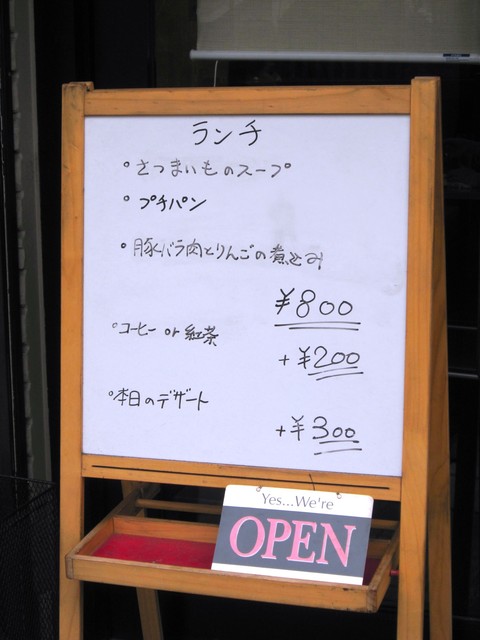 ランチ
° さつまいものスープ
° プチパン
° 豚バラ肉とりんごの煮込み
¥800
° コーヒー or 紅茶
+¥200
° 本日のデザート
+¥300
Yes...We're
OPEN